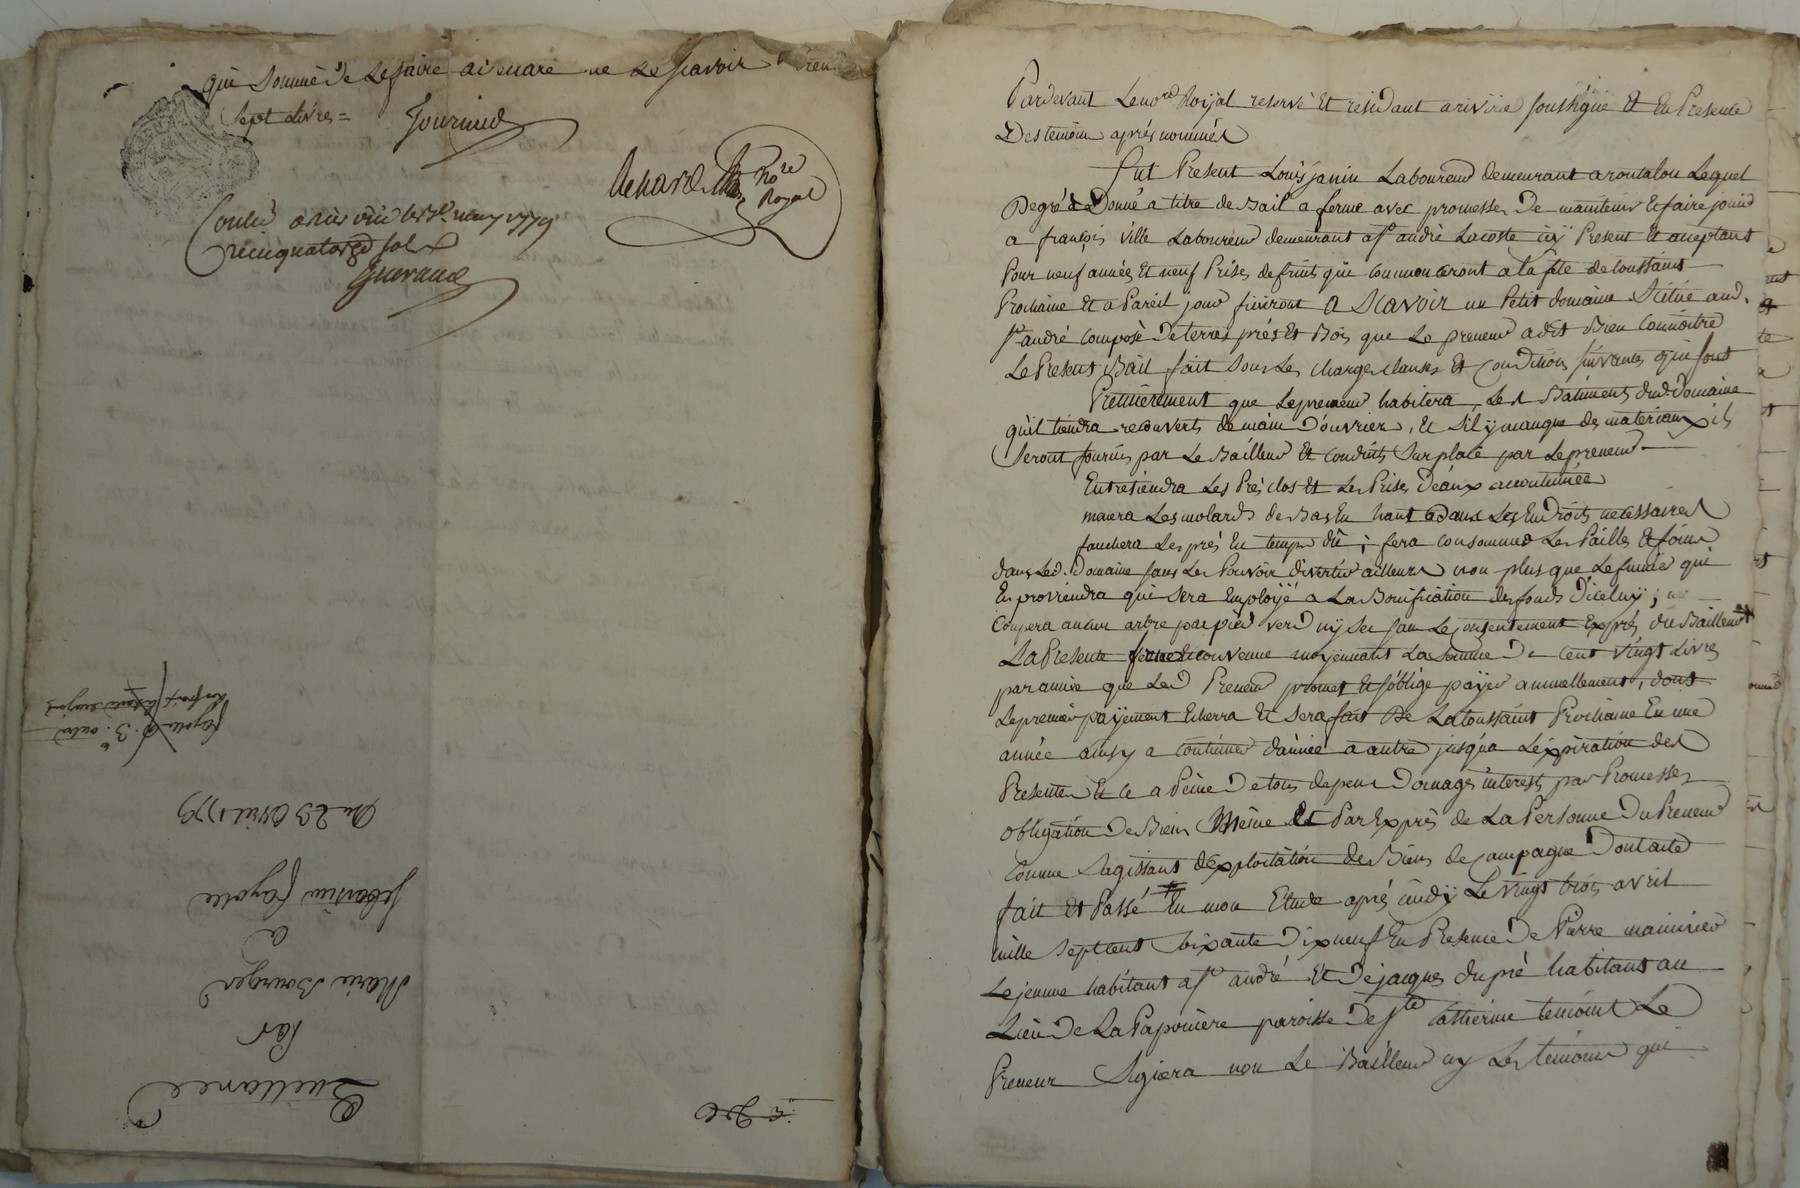 qui Sommé de Le faire a declaré ne Le scavoir
Sept Livres =
Journoud
Renard No.re Royal
Conlé a rive 1779
Reçu quatorze sols
Guiraud
Quittance
Par
Marie Bourger
a
Sebastien fayolle
Du 23 Avril 1779
Pardevant Le no.re Royal reservé Et residant a rivirie soussigné Et En Presence
Des temoins aprés nommés
fut Present Louis janin Laboureur demeurant a rontalon Lequel
De gré a Donné a titre de Bail a ferme avec promesse De maintenir Et faire jouir
a françois ville Laboureur demeurant a s.t andré Lacoste icy Present Et acceptant
Pour neuf années Et neuf Prises de fruits qui commenceront a la fete de toussaint
Prochaine Et a Pareil jour finiront a Scavoir un Petit domaine Scitué aud.
s.t andré Composé De terres prés Et Bois que Le preneur a dit Bien Connoitre
Le Present Bail fait Sous Les charges clauses Et Conditions suivantes qui sont
Premierement que Le preneur habitera Les Batiments dud. Domaine
qu'il tiendra recouverts de main D'ouvrier, Et s'il y manque des materiaux ils
Seront fournis par Le Bailleur Et conduits Sur place par Le preneur
Entretiendra Les Prés clos Et Les Prises D'eaux accoutumées
menera Les molards de Bas En haut dans Les Endroits necessaires
fauchera Les prés En temps dû ; fera consommer Les Pailles Et foins
dans Led. Domaine sans Les Pouvoir divertir ailleurs non plus que Le fumier qui
En proviendra qui Sera Employé a La Bonification des fonds D'iceluy ; ne
Coupera aucun arbre par pied verd ny Sec sans Le consentement Exprés du Bailleur
La Presente ferme convenue moyennant La Somme De Cent vingt Livres
par année que Led Preneur promet Et s'oblige payer annuellement, dont
Le premier payement Echerra Et Sera fait De La toussaint Prochaine En une
année ainsy a continuer d'année a autre jusqu'a L'expiration des
Presentes Et ce a Peine De tous depens Domages interets par Promesses
obligation De Biens Même Et Par Exprés de La Personne Du Preneur
Comme S'agissant d'Exploitation de Biens de Campagne Dont acte
fait Et Passé En mon Etude aprés midy Le vingt trois avril
mille Sept Cent Soixante Dix neuf En Presence De Pierre
Le jeune habitant a s.t andré Et De jacques dupré habitant au
Lieu De La Paponiere paroisse De s.te Catherine temoins Le
Preneur Signera non Le Bailleur ny Les temoins qui